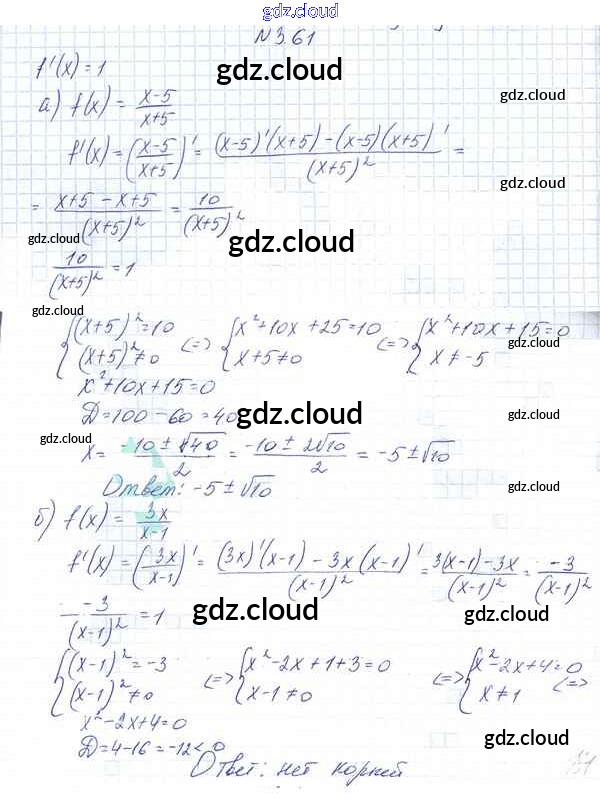 gdz.cloud
N 3.61
f'(x) = 1 gdz.cloud
gdz.cloud
а) f(x) = (x-5)/(x+5)
f'(x) = ((x-5)/(x+5))' = ((x-5)'(x+5) - (x-5)(x+5)')/(x+5)² =
gdz.cloud
= (x+5 - x+5)/(x+5)² = 10/(x+5)²
gdz.cloud gdz.cloud
10/(x+5)² = 1
gdz.cloud
{(x+5)² = 10 <=> {x²+10x+25=10 <=> {x²+10x+15=0
(x+5)² ≠ 0 x+5≠0 x ≠ -5
gdz.cloud
x²+10x+15=0
Д=100-60=40
gdz.cloud gdz.cloud gdz.cloud
x = (-10 ± √40)/2 = (-10 ± 2√10)/2 = -5 ± √10
Ответ: -5 ± √10
gdz.cloud
б) f(x) = 3x/(x-1)
f'(x) = (3x/(x-1))' = ((3x)'(x-1) - 3x(x-1)')/(x-1)² = (3(x-1)-3x)/(x-1)² = -3/(x-1)²
-3/(x-1)² = 1
gdz.cloud gdz.cloud gdz.cloud
{(x-1)² = -3 <=> {x²-2x+1+3=0 <=> {x²-2x+4=0 <=>
(x-1)² ≠ 0 x-1≠0 x≠1
gdz.cloud gdz.cloud gdz.cloud
x²-2x+4=0
Д=4-16=-12<0
Ответ: нет корней